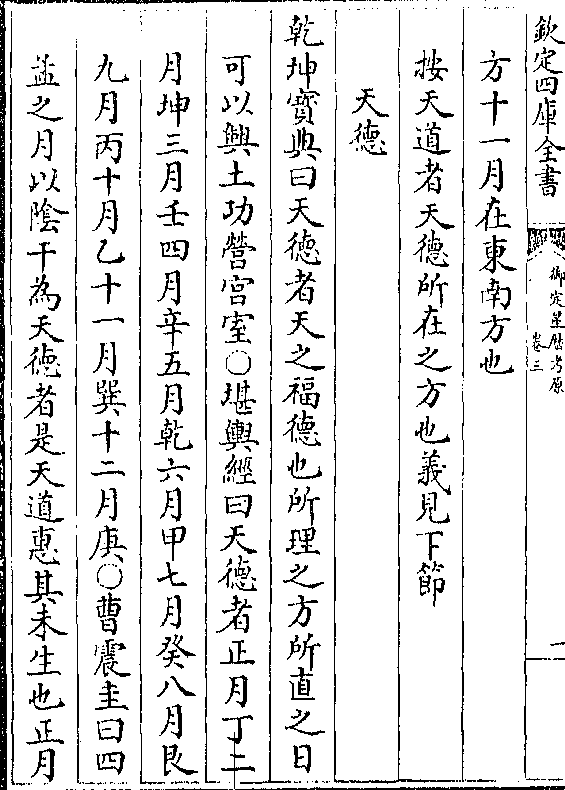 欽定四庫全書
御定星歴考原
卷三
一
方十一月在東南方也
按天道者天德所在之方也義見下節
天德
乾坤寳典曰天德者天之福德也所理之方所直之日
可以興土功營宫室○堪輿經曰天德者正月丁二
月坤三月壬四月辛五月乾六月甲七月癸八月艮
九月丙十月乙十一月巽十二月庚○曹震圭曰四
孟之月以隂干為天德者是天道惠其未生也正月